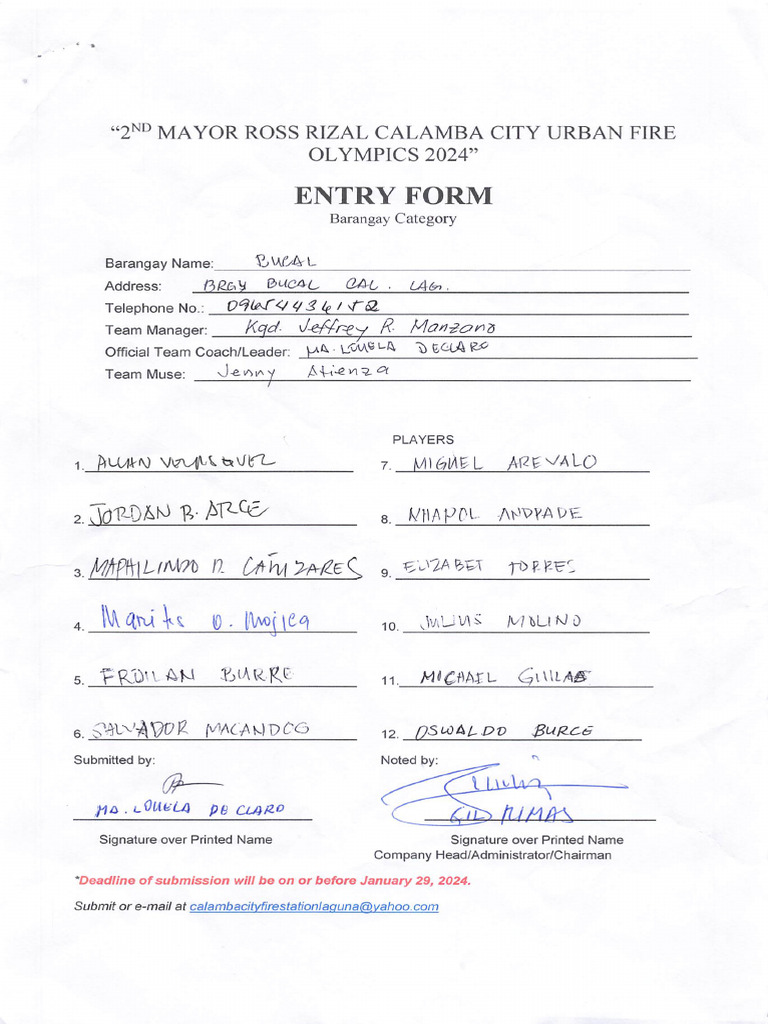 “2ND MAYOR ROSS RIZAL CALAMBA CITY URBAN FIRE
OLYMPICS 2024”
ENTRY FORM
Barangay Category
Barangay Name: BUCAL
Address: BRGY BUCAL CAL. LAG.
Telephone No.: 09654436152
Team Manager: Kgd. Jeffrey R. Manzano
Official Team Coach/Leader: MA. LOUELA DECLARO
Team Muse: Jenny Atienza
PLAYERS
1. ALLAN VELASQUEZ
7. MIGUEL AREVALO
2. JORDAN B. ARCE
8. NHAPOL ANDRADE
3. MAPHILINDO D. CAÑIZARES
9. ELIZABET TORRES
4. Marites O. Mojica
10. JULIUS MOLINO
5. FROILAN BURRE
11. MICHAEL
6. SALVADOR MACANDOG
12. OSWALDO BURCE
Submitted by:
Noted by:
MA. LOUELA DE CLARO
GIL RIMAS
Signature over Printed Name
Signature over Printed Name
Company Head/Administrator/Chairman
*Deadline of submission will be on or before January 29, 2024.
Submit or e-mail at calambacityfirestationlaguna@yahoo.com